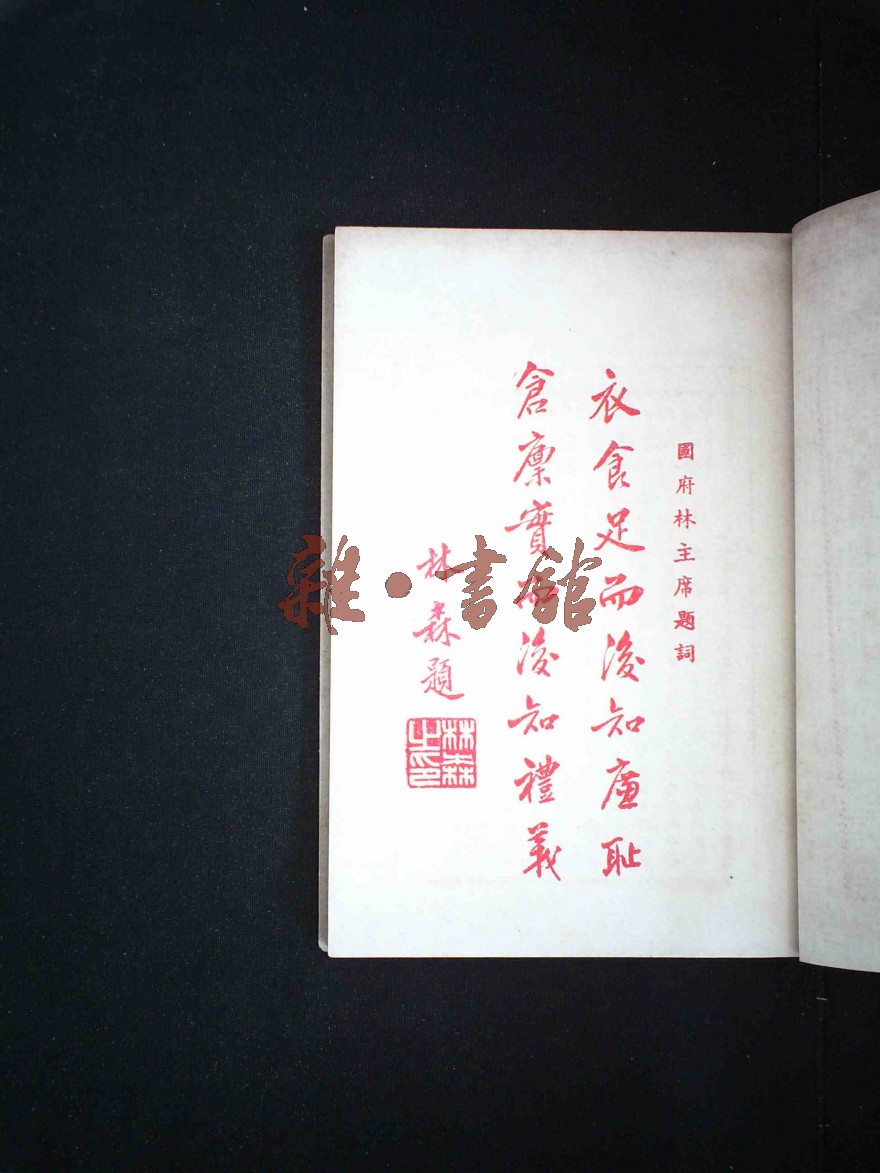 國府林主席題詞
衣食足而後知廉恥
倉廪實而後知禮義
林森題
林森之印
雜·書舘